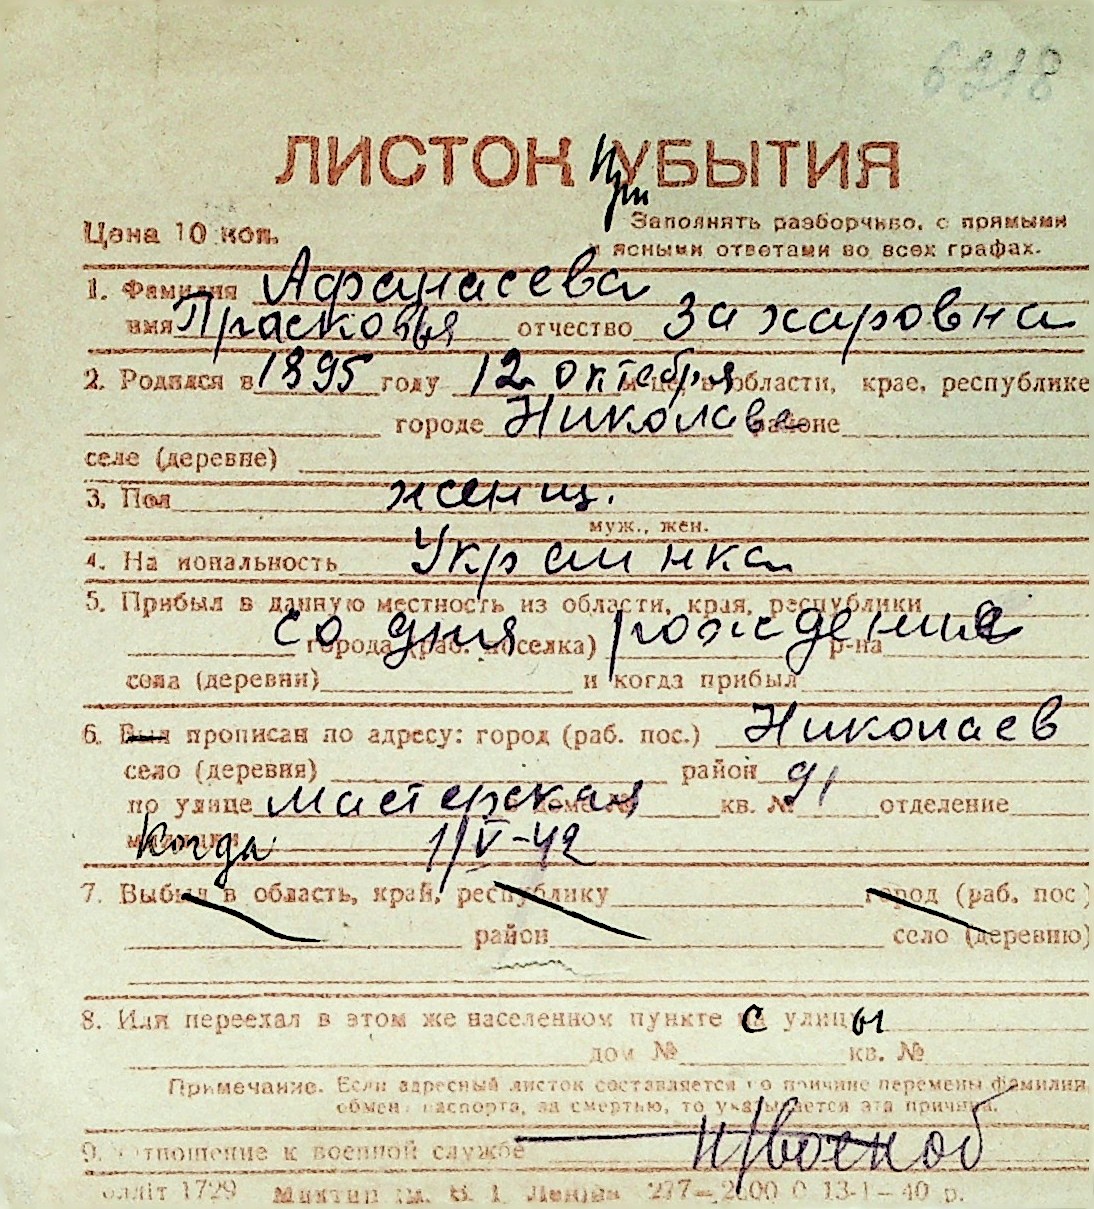 6218
ЛИСТОК При УБЫТИЯ
Цена 10 коп. Заполнять разборчиво, с прямыми
и ясными ответами во всех графах.
1. Фамилия Афанасева
имя Прасковья отчество Захаровна
2. Родился в 1895 году 12 октября м-це, в области, крае, республике
городе Николаве районе
селе (деревне)
3. Пол женщ.
муж., жен.
4. Национальность Украинка
5. Прибыл в данную местность из области, края, республики
со дня рождения
города (раб. поселка) р-на
села (деревни) и когда прибыл
6. Был прописан по адресу: город (раб. пос.) Николаев
село (деревня) район
по улице Мастерская дом № кв. № 91 отделение
милиции Когда 1/V-42
7. Выбыл в область, край, республику город (раб. пос.)
район село (деревню)
8. Или переехал в этом же населенном пункте с улицы
дом № кв. №
Примечание. Если адресный листок составляется по причине перемены фамилии,
обмена паспорта, за смертью, то указывается эта причина.
9. Отношение к военной службе н/военоб
Облліт 1729 Миктип ім. В. І. Леніна 277—2000 0 13-1—40 р.